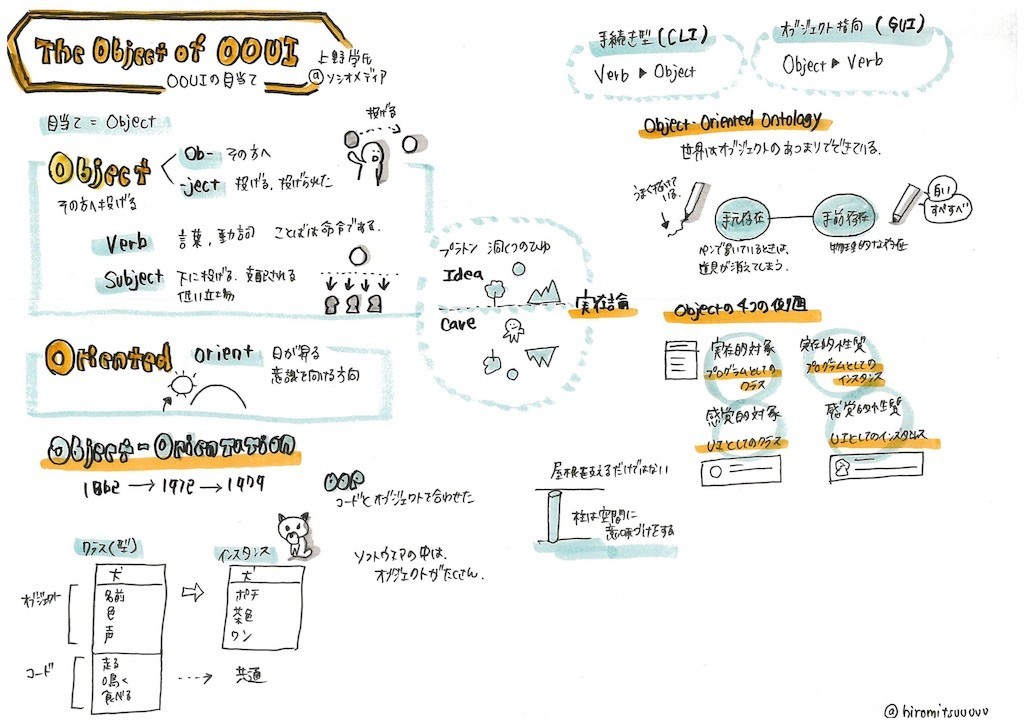 The Object of OOUI
OOUIの目当て
上野学氏
@ソシオメディア
目当て = Object
投げる
Object
その方へ投げる
Ob- その方へ
-ject 投げる、投げられた
Verb 言葉、動詞 ことばは命令である。
Subject 下に投げる、支配される
低い立場
プラトン 洞くつのひゆ
Idea
Cave
実在論
Oriented
orient 日が昇る
意識を向ける方向
Object-Orientation
1962 → 1972 → 1979
OOP
コードとオブジェクトを合わせた
ソフトウエアの中は、
オブジェクトがたくさん。
クラス(型)
インスタンス
オブジェクト
犬
名前
色
声
犬
ポチ
茶色
ワン
コード
走る
鳴く
食べる
共通
手続き型 (CLI)
Verb ▶ Object
オブジェクト指向 (GUI)
Object ▶ Verb
Object-Oriented Ontology
世界はオブジェクトのあつまりでできている。
うまく描けて
いる。
手元存在
手前存在
白い
すべすべ
ペンで書いているときは、
道具が消えてしまう。
物理的な存在
Objectの4つの側面
実在的対象
プログラムとしての
クラス
実在的性質
プログラムとしての
インスタンス
感覚的対象
UIとしてのクラス
感覚的性質
UIとしてのインスタンス
屋根を支えるだけではない
柱は空間に
意味づけをする
@hiromitsuuuuu